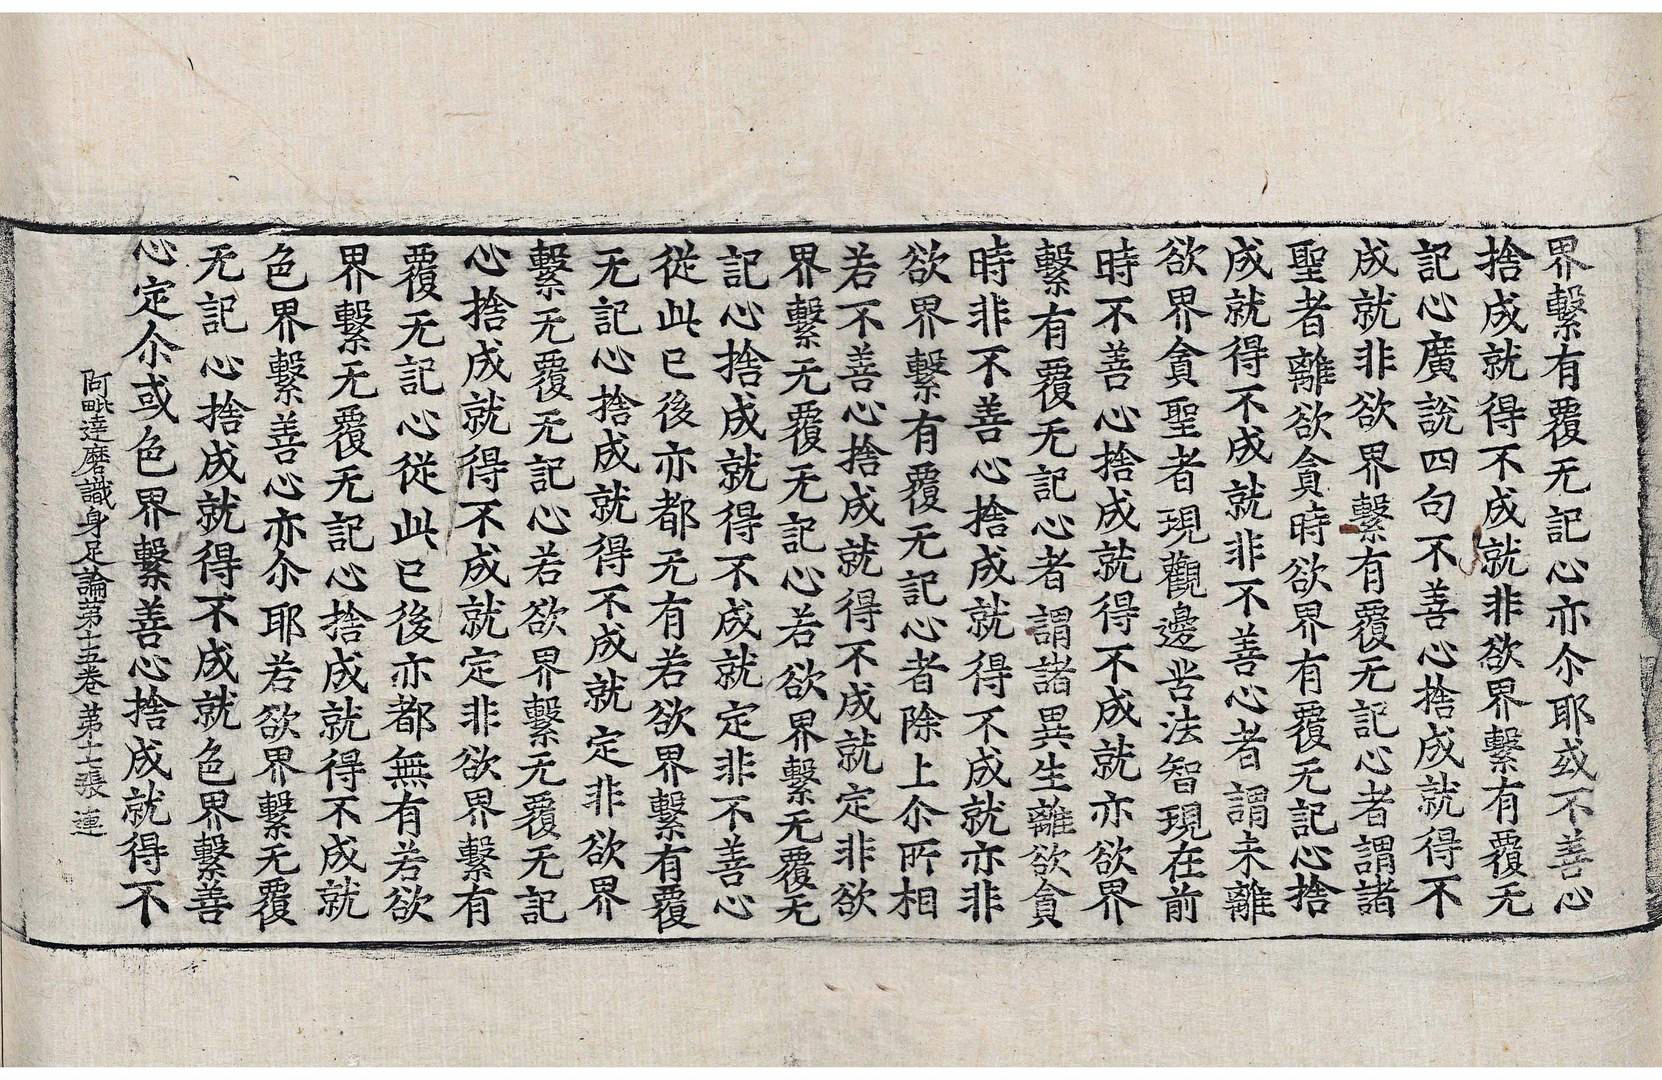 界繫有覆无記心亦尒耶或不善心
捨成就得不成就非欲界繫有覆无
記心廣說四句不善心捨成就得不
成就非欲界繫有覆无記心者謂諸
聖者離欲貪時欲界有覆无記心捨
成就得不成就非不善心者謂未離
欲界貪聖者現觀邊苦法智現在前
時不善心捨成就得不成就亦欲界
繫有覆无記心者謂諸異生離欲貪
時非不善心捨成就得不成就亦非
欲界繫有覆无記心者除上尒所相
若不善心捨成就得不成就定非欲
界繫无覆无記心若欲界繫无覆无
記心捨成就得不成就定非不善心
從此已後亦都无有若欲界繫有覆
无記心捨成就得不成就定非欲界
繫无覆无記心若欲界繫无覆无記
心捨成就得不成就定非欲界繫有
覆无記心從此已後亦都無有若欲
界繫无覆无記心捨成就得不成就
色界繫善心亦尒耶若欲界繫无覆
无記心捨成就得不成就色界繫善
心定尒或色界繫善心捨成就得不
阿毗達磨識身足論苐十五卷 苐十七張 連